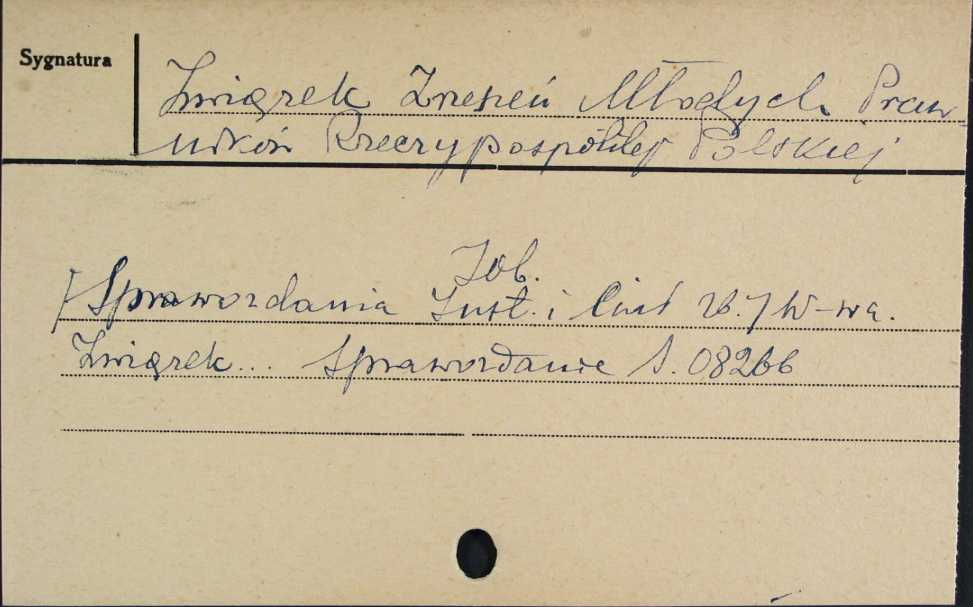 Sygnatura
Związek Zrzeszeń Młodych Praw-
ników Rzeczypospolitej Polskiej
Zob.
[Sprawozdania Inst. i 26.] W-wa.
Związek... Sprawozdanie S. 08266